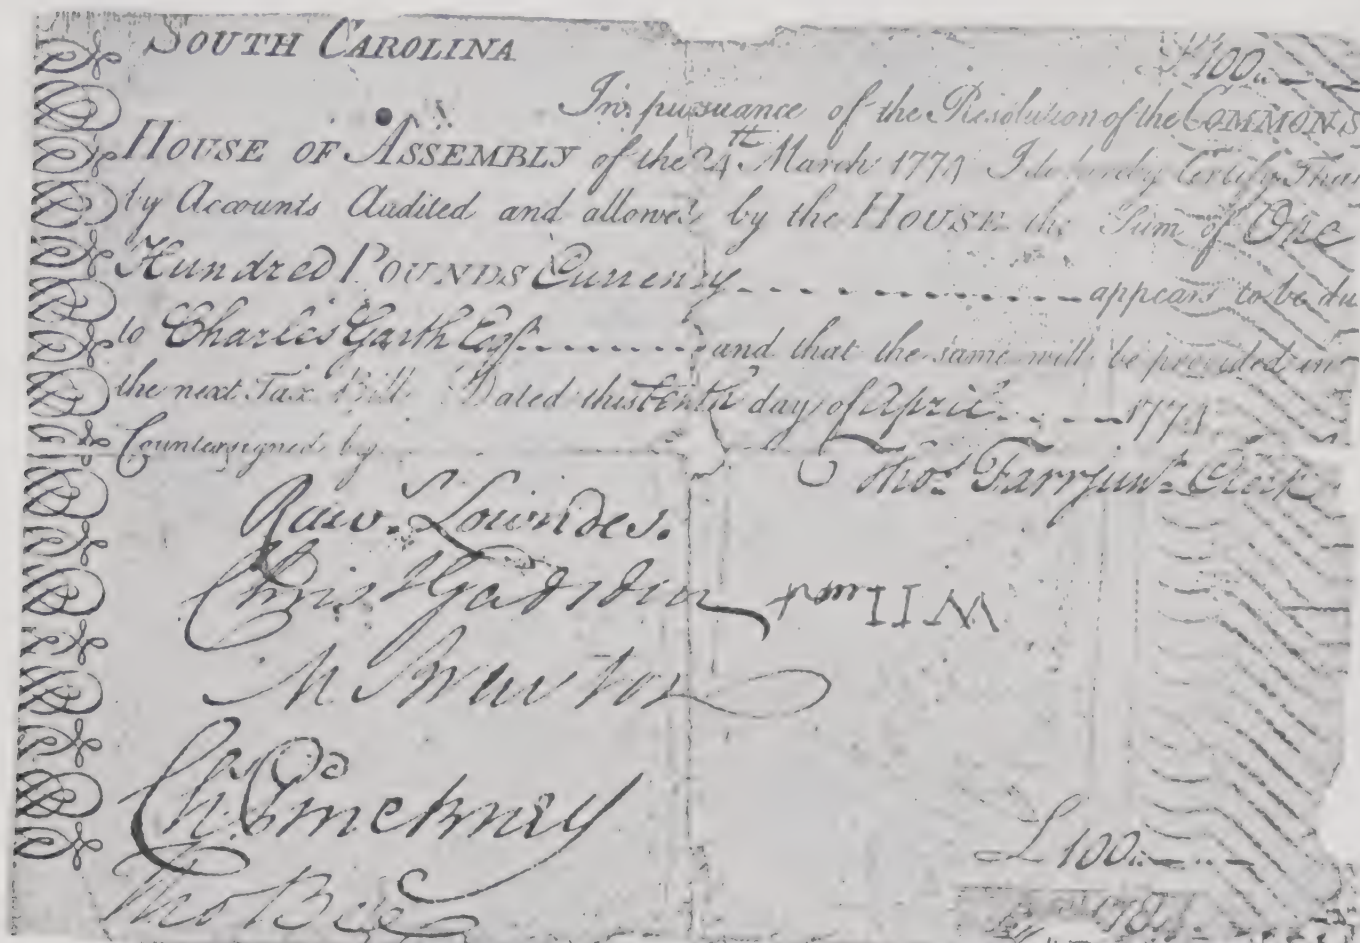 SOUTH CAROLINA
£100
In pursuance of the Resolution of the COMMONS
HOUSE OF ASSEMBLY of the 24th March 1774 I do hereby Certify That
by Accounts Audited and allowed by the HOUSE the Sum of One
Hundred POUNDS Currency appears to be du
to Charles Garth Esqr. and that the same will be provided in
the next Tax Bill. Dated this tenth day of April 1774
Countersigned by
Thos. Farr Junr. Clerk
Raw. Lowndes.
Christ Gadsden
M Brewton
Chs. Pinckney
Tho Bee
£100